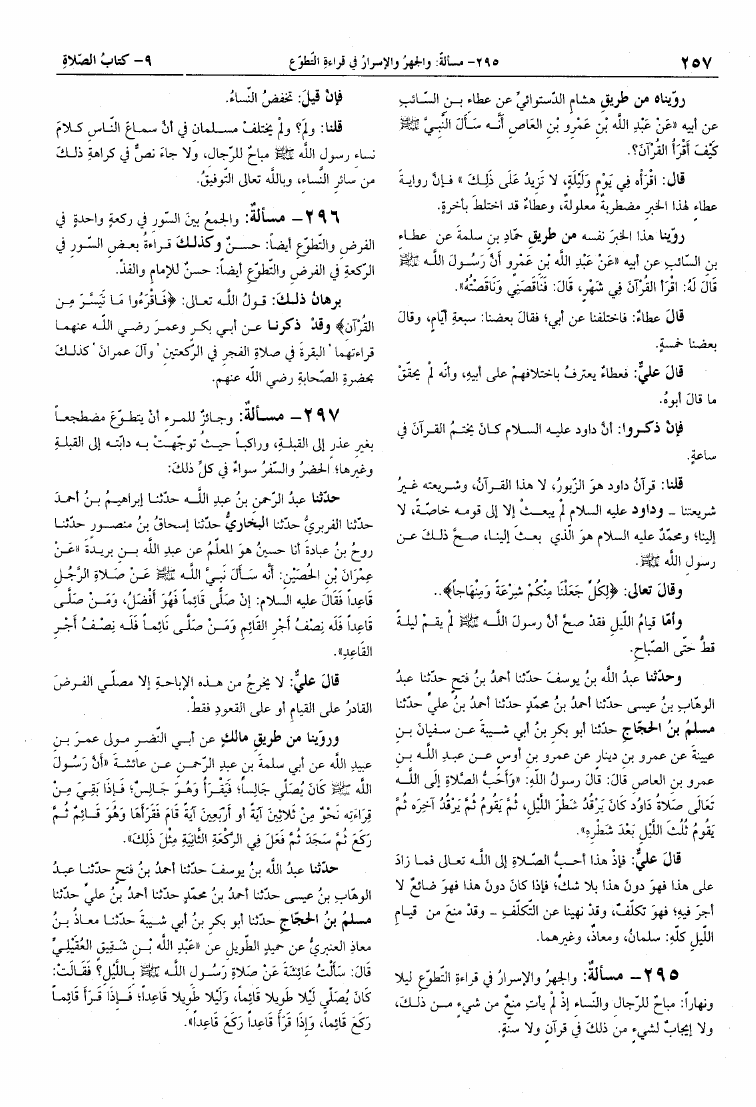 ٢٥٧
٢٩٥- مسألة: والجهرُ والإسرارُ في قراءةِ التّطوّع
٩- كتابُ الصّلاةِ
روّيناه من طريقِ هشام الدّستوائيِّ عن عطاء بـنِ السّائبِ
عن أبيه «عَنْ عَبْدِ الله بْنِ عَمْرِو بْنِ العَاصِ أَنَّـه سَـأَلَ النَّبِيَّ ﷺ
كَيْفَ أَقْرَأُ القُرْآنَ؟.
قال: اقْرَأْه فِي يَوْمٍ وَلَيْلَةٍ، لا تَزِيدُ عَلَى ذَلِـكَ » فـإنَّ روايـةَ
عطاءٍ لهذا الخبرِ مضطربةٌ معلولةٌ، وعطاءٌ قد اختلطَ بأخرةٍ.
روّينا هذا الخبرَ نفسه من طريقِ حمّادِ بنِ سلمةَ عن عطـاءِ
بنِ السّائبِ عن أبيه «عَنْ عَبْدِ الله بْنِ عَمْرٍو أَنَّ رَسُولَ الله ﷺ
قَالَ لَهُ: اقْرَأِ القُرْآنَ فِي شَهْرٍ، قَالَ: فَنَاقَصَنِي وَنَاقَصْتُهُ».
قال عطاءٌ: فاختلفنا عن أبي؛ فقالَ بعضنا: سبعةَ أيّامٍ، وقالَ
بعضنا خمسةٍ.
قال عليٌّ: فعطاءٌ يعترفُ باختلافهمْ على أبيهِ، وأنّه لمْ يحقّقْ
ما قالَ أبوهُ.
فإنْ ذكـروا: أنَّ داود عليـه السـلام كـانَ يختـمُ القـرآنَ في
ساعةٍ.
قلنا: قرآنُ داود هوَ الزّبورُ، لا هذا القرآنُ، وشـريعته غـيرُ
شريعتنا - وداود عليه السلام لم يبعـثْ إلا إلى قومـه خاصّـةً، لا
إلينا؛ ومحمّدٌ عليه السلام هوَ الّذي بعـثَ إلينـا، صـحَّ ذلـكَ عـن
رسولِ الله ﷺ.
وقالَ تعالى: ﴿لِكُلٍّ جَعَلْنَا مِنْكُمْ شِرْعَةً وَمِنْهَاجاً﴾..
وأمّا قيامُ اللّيلِ فقدْ صحَّ أنَّ رسولَ اللّـه ﷺ لمْ يقـمْ ليلـةً
قطُّ حتّى الصّباحِ.
وحدّثنا عبدُ الله بنُ يوسفَ حدّثنا أحمدُ بنُ فتحٍ حدّثنا عبدُ
الوهّابِ بنُ عيسى حدّثنا أحمدُ بنُ محمّدٍ حدّثنا أحمدُ بنُ عليٍّ حدّثنا
مسلمُ بنُ الحجّاجِ حدّثنا أبو بكرِ بنُ أبي شـيبةَ عـن سـفيانَ بـنِ
عيينةَ عن عمرِو بن دينارٍ عن عمرِو بنِ أوسٍ عـن عبـدِ اللـه بـنِ
عمرِو بنِ العاصِ قالَ: قالَ رسولُ اللّهِ: «وَأَحَبُّ الصَّلاةِ إِلَى اللّـه
تَعَالَى صَلاةُ دَاوُد كَانَ يَرْقُدُ شَطْرَ اللَّيْلِ، ثُمَّ يَقُومُ ثُمَّ يَرْقُدُ آخِرَه ثُمَّ
يَقُومُ ثُلُثَ اللَّيْلِ بَعْدَ شَطْرِهِ».
قالَ عليٌّ: فإذْ هذا أحبُّ الصّلاةِ إلى اللّـه تعالى فمـا زادَ
على هذا فهوَ دونَ هذا بلا شكٍّ؛ فإذا كانَ دونَ هذا فهوَ ضائعٌ لا
أجرَ فيهِ؛ فهوَ تكلّفٌ، وقدْ نهينا عن التّكلّفِ - وقدْ منعَ من قيـامِ
اللّيلِ كلّهِ: سلمانُ، ومعاذٌ، وغيرهما.
٢٩٥- مسـألةٌ: والجهرُ والإسرارُ في قراءةِ التّطوّعِ ليلا
ونهاراً: مباحٌ للرّجالِ والنّساءِ إذْ لمْ يأتِ منعٌ من شيءٍ مـن ذلـكَ،
ولا إيجابٌ لشيءٍ من ذلكَ في قرآنٍ ولا سنّةٍ.
فإنْ قيلَ: تخفضُ النّساءُ.
قلنا: ولمَ؟ ولمْ يختلفْ مسـلمانِ في أنَّ سماعَ النّـاسِ كـلامَ
نساءِ رسولِ الله ﷺ مباحٌ للرّجالِ، ولا جاءَ نصٌّ في كراهةِ ذلـكَ
من سائرِ النّساءِ، وباللّه تعالى التّوفيقُ.
٢٩٦- مسـألةٌ: والجمعُ بينَ السّورِ في ركعةٍ واحدةٍ في
الفرضِ والتّطوّعِ أيضاً: حسـنٌ وكذلـكَ قـراءةُ بعـضِ السّـورِ في
الرّكعةِ في الفرضِ والتّطوّعِ أيضاً: حسنٌ للإمامِ والفذِّ.
برهانُ ذلـكَ: قـولُ اللّـه تعـالى: ﴿فَـاقْرَءُوا مَـا تَيَسَّـرَ مِـن
القُرْآنِ﴾ وقدْ ذكرنـا عـن أبـي بكـرٍ وعمـرَ رضـي اللّـه عنهمـا
قراءتهما "البقرةَ في صلاةِ الفجرِ في الرّكعتينِ "وآلَ عمرانَ "كذلـكَ
بحضرةِ الصّحابةِ رضي الله عنهم.
٢٩٧- مسـألةٌ: وجـائزٌ للمـرءِ أنْ يتطـوّعَ مضطجعـاً
بغيرِ عذرٍ إلى القبلةِ، وراكبـاً حيـثُ توجّهـتْ بـه دابّتـه إلى القبلـةِ
وغيرها؛ الحضرُ والسّفرُ سواءٌ في كلِّ ذلكَ:
حدّثنا عبدُ الرّحمنِ بنُ عبدِ اللّـه حدّثنـا إبراهيـمُ بـنُ أحمـدَ
حدّثنا الفربريُّ حدّثنا البخاريُّ حدّثنا إسحاقُ بنُ منصـورٍ حدّثنـا
روحُ بنُ عبادةَ أنا حسينٌ هوَ المعلّمُ عن عبدِ الله بـنِ بريـدةَ «عَـنْ
عِمْرَانَ بْنِ الحُصَيْنِ: أَنَّه سَـأَلَ نَبِـيَّ اللَّـه ﷺ عَـنْ صَـلاةِ الرَّجُـلِ
قَاعِداً فَقَالَ عليه السلام: إِنْ صَلَّى قَائِماً فَهُوَ أَفْضَلُ، وَمَـنْ صَلَّـى
قَاعِداً فَلَه نِصْفُ أَجْرِ القَائِمِ وَمَـنْ صَلَّـى نَائِمـاً فَلَـه نِصْـفُ أَجْـرِ
القَاعِدِ».
قالَ عليٌّ: لا يخرجُ من هـذه الإباحـةِ إلا مصلّي الفـرضِ
القادرُ على القيامِ أو على القعودِ فقطْ.
وروّينا من طريقِ مالكٍ عن أبـي النّضـرِ مـولى عمـرَ بـنِ
عبيدِ اللّه عن أبي سلمةَ بنِ عبدِ الرّحمـنِ عـن عائشـةَ «أَنَّ رَسُـولَ
اللّه ﷺ كَانَ يُصَلِّي جَالِساً؛ فَيَقْـرَأُ وَهُـوَ جَـالِسٌ؛ فَـإِذَا بَقِـيَ مِـنْ
قِرَاءَتِهِ نَحْوٌ مِنْ ثَلاثِينَ آيَةً أَو أَرْبَعِينَ آيَةً قَامَ فَقَرَأَهَا وَهُوَ قَـائِمٌ ثُـمَّ
رَكَعَ ثُمَّ سَجَدَ ثُمَّ فَعَلَ فِي الرَّكْعَةِ الثَّانِيَةِ مِثْلَ ذَلِكَ».
حدّثنا عبدُ اللّه بنُ يوسفَ حدّثنا أحمدُ بنُ فتحٍ حدّثنـا عبـدُ
الوهّابِ بنُ عيسى حدّثنا أحمدُ بنُ محمّدٍ حدّثنا أحمدُ بنُ عليٍّ حدّثنا
مسلمُ بنُ الحجّاجِ حدّثنا أبو بكرِ بنُ أبي شـيبةَ حدّثنـا معـاذُ بـنُ
معاذٍ العنبريُّ عن حميدٍ الطّويلِ عن «عَبْدِ اللّه بْـنِ شَـقِيقٍ العُقَيْلِـيِّ
قَالَ: سَأَلْتُ عَائِشَةَ عَنْ صَلاةِ رَسُولِ اللَّه ﷺ بِـاللَّيْلِ؟ فَقَـالَتْ:
كَانَ يُصَلِّي لَيْلا طَوِيلا قَائِماً، وَلَيْلا طَوِيلا قَاعِداً؛ فَـإِذَا قَـرَأَ قَائِمـاً
رَكَعَ قَائِماً، وَإِذَا قَرَأَ قَاعِداً رَكَعَ قَاعِداً».